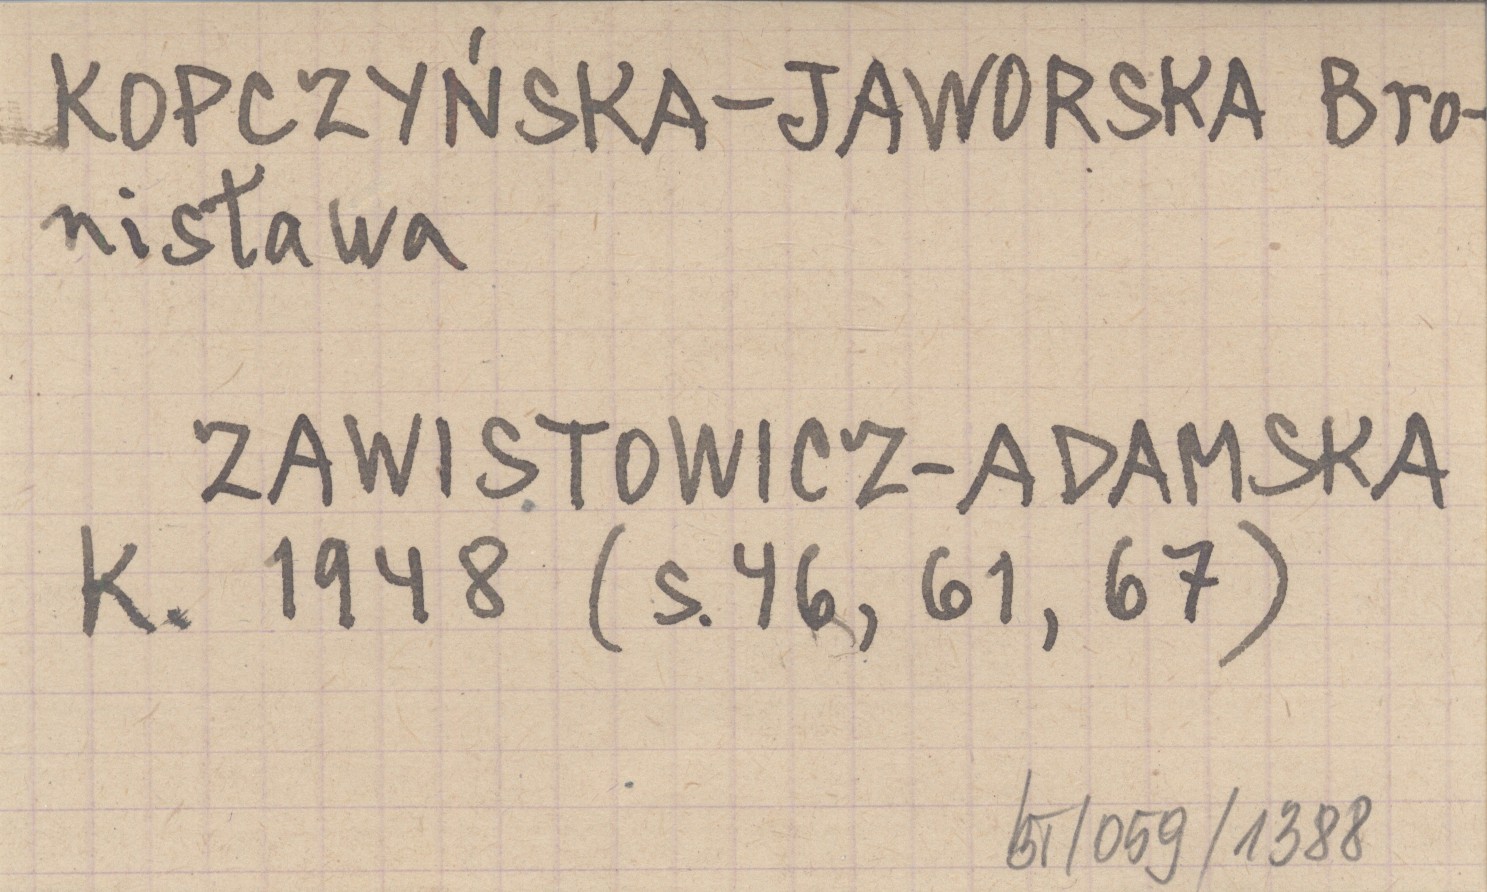 KOPCZYŃSKA-JAWORSKA Bro-
nisława
ZAWISTOWICZ-ADAMSKA
K. 1948 (s. 46, 61, 67)
/059/1388